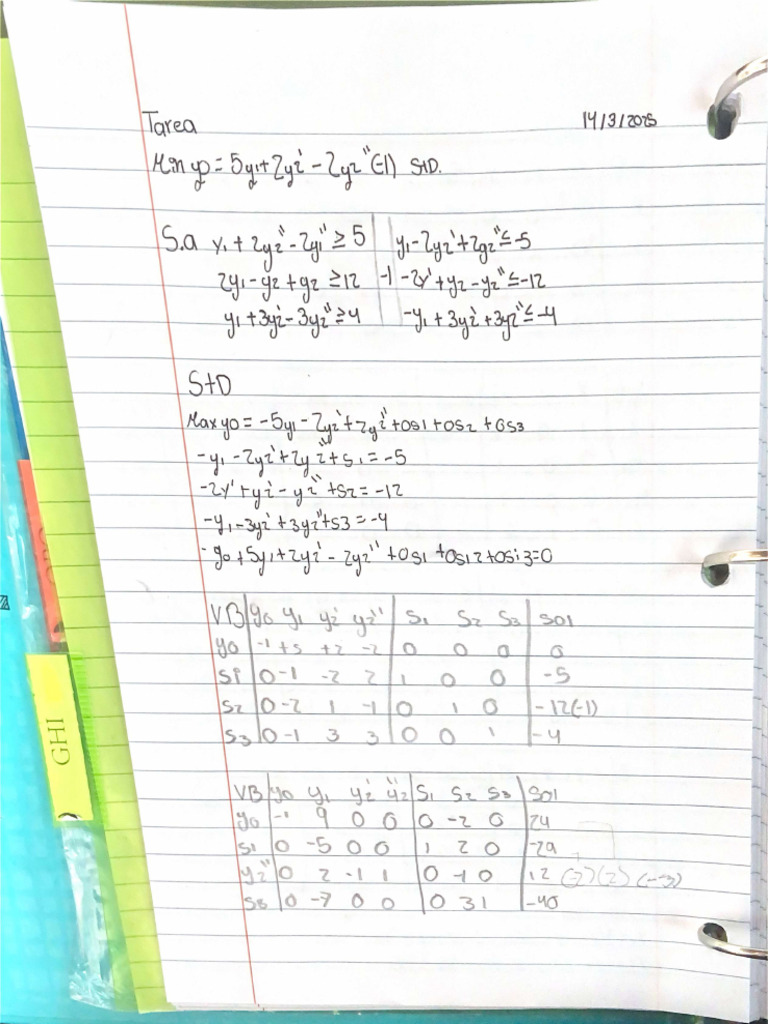 Tarea 14/3/2025
Min yo = 5y1 + 2y2' - 2y2'' (-1) StD.
S.a y1 + 2y2'' - 2y1'' ≥ 5 | y1 - 2y2' + 2y2'' ≤ -5
2y1 - y2 + y2 ≥ 12 | -1 -2y' + y2 - y2'' ≤ -12
y1 + 3y2' - 3y2'' ≥ 4 | -y1 + 3y2' + 3y2'' ≤ -4
StD
Max yo = -5y1 - 2y2' + 2y2'' + 0s1 + 0s2 + 0s3
-y1 - 2y2' + 2y2'' + s1 = -5
-2y' + y2' - y2'' + s2 = -12
-y1 - 3y2' + 3y2'' + s3 = -4
-yo + 5y1 + 2y2' - 2y2'' + 0s1 + 0s12 + 0si3 = 0
VB | yo y1 y2' y2'' | S1 S2 S3 | SOl
yo | -1 +5 +2 -2 | 0 0 0 | 0
S1 | 0 -1 -2 2 | 1 0 0 | -5
S2 | 0 -2 1 -1 | 0 1 0 | -12(-1)
S3 | 0 -1 3 3 | 0 0 1 | -4
VB | yo y1 y2' y2'' | S1 S2 S3 | SOl
yo | -1 9 0 0 | 0 -2 0 | 24
S1 | 0 -5 0 0 | 1 2 0 | -29
y2'' | 0 2 -1 1 | 0 -1 0 | 12 (2) (2) (-3)
S3 | 0 -7 0 0 | 0 3 1 | -40
GHI